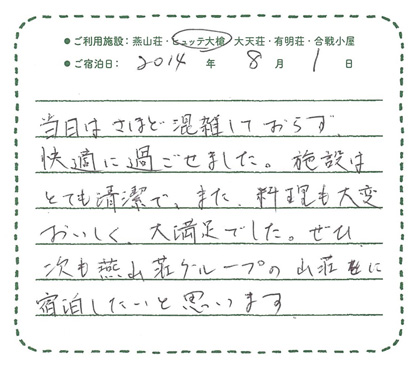 ●ご利用施設：燕山荘・ヒュッテ大槍・大天荘・有明荘・合戦小屋
●ご宿泊日： 2014 年 8 月 1 日
当日はさほど混雑しておらず、
快適に過ごせました。施設は
とても清潔で、また、料理も大変
おいしく、大満足でした。ぜひ
次も燕山荘グループの山荘に
宿泊したいと思います